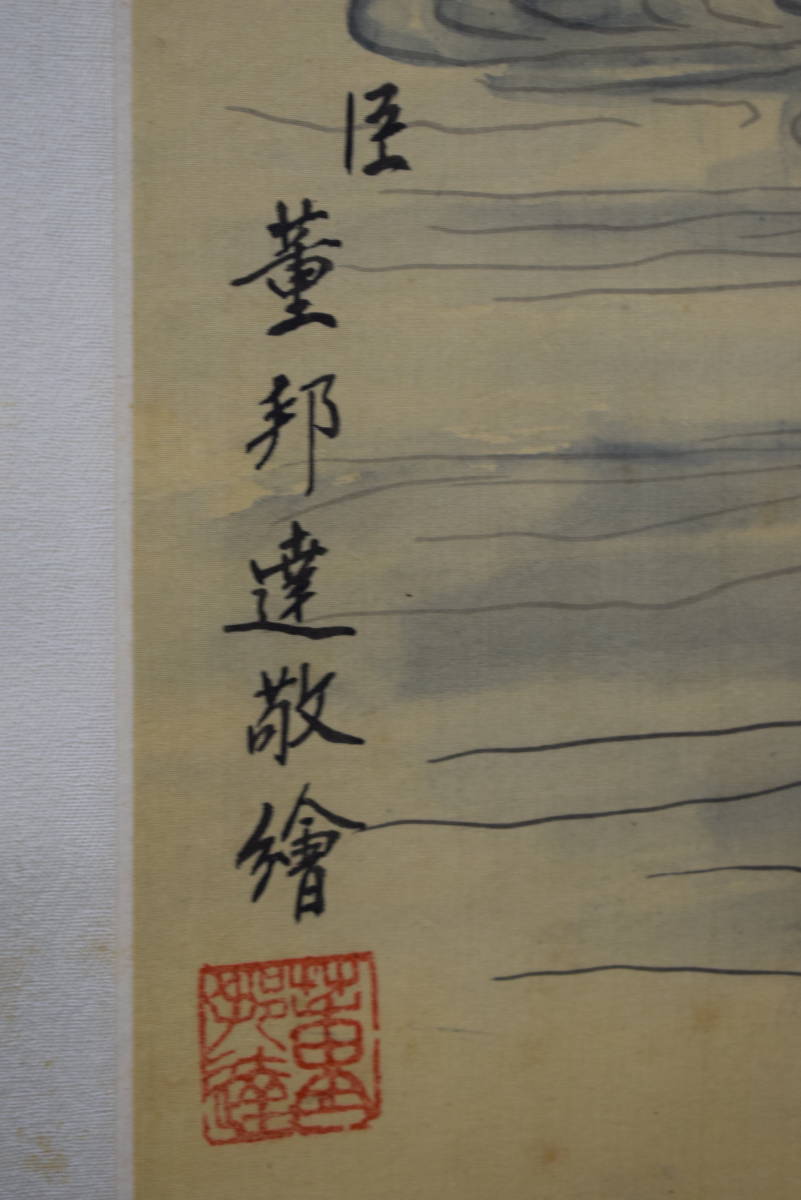 臣
董邦達敬繪
董邦達